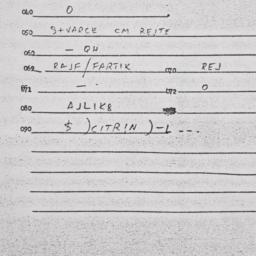 040 O
050 S+VARCE CM REJTE
060 – OH
069 RAJF/FARTIK 070 REJ
071 – . 072 O
080 AJLIK8
090 $ )CITRIN)–L ---